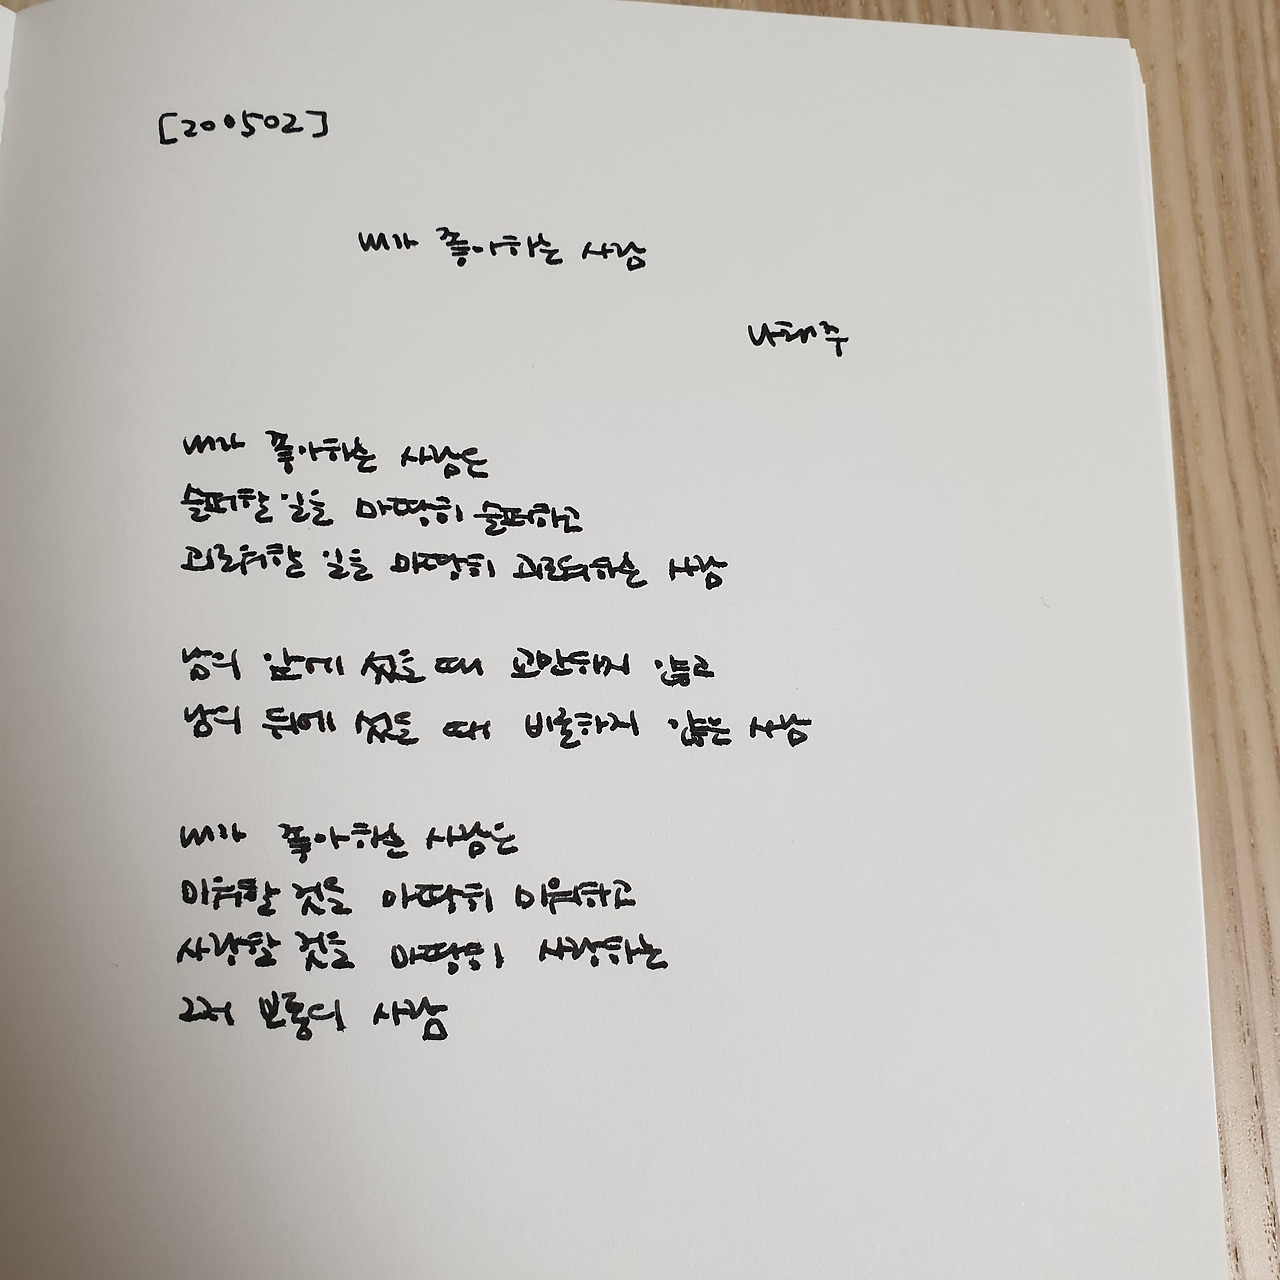 [200502]
내가 좋아하는 사람
나태주
내가 좋아하는 사람은
슬퍼할 일을 마땅히 슬퍼하고
괴로워할 일을 마땅히 괴로워하는 사람
남의 앞에 섰을 때 교만하지 않고
남의 뒤에 섰을 때 비굴하지 않는 사람
내가 좋아하는 사람은
미워할 것을 마땅히 미워하고
사랑할 것을 마땅히 사랑하는
그저 보통의 사람